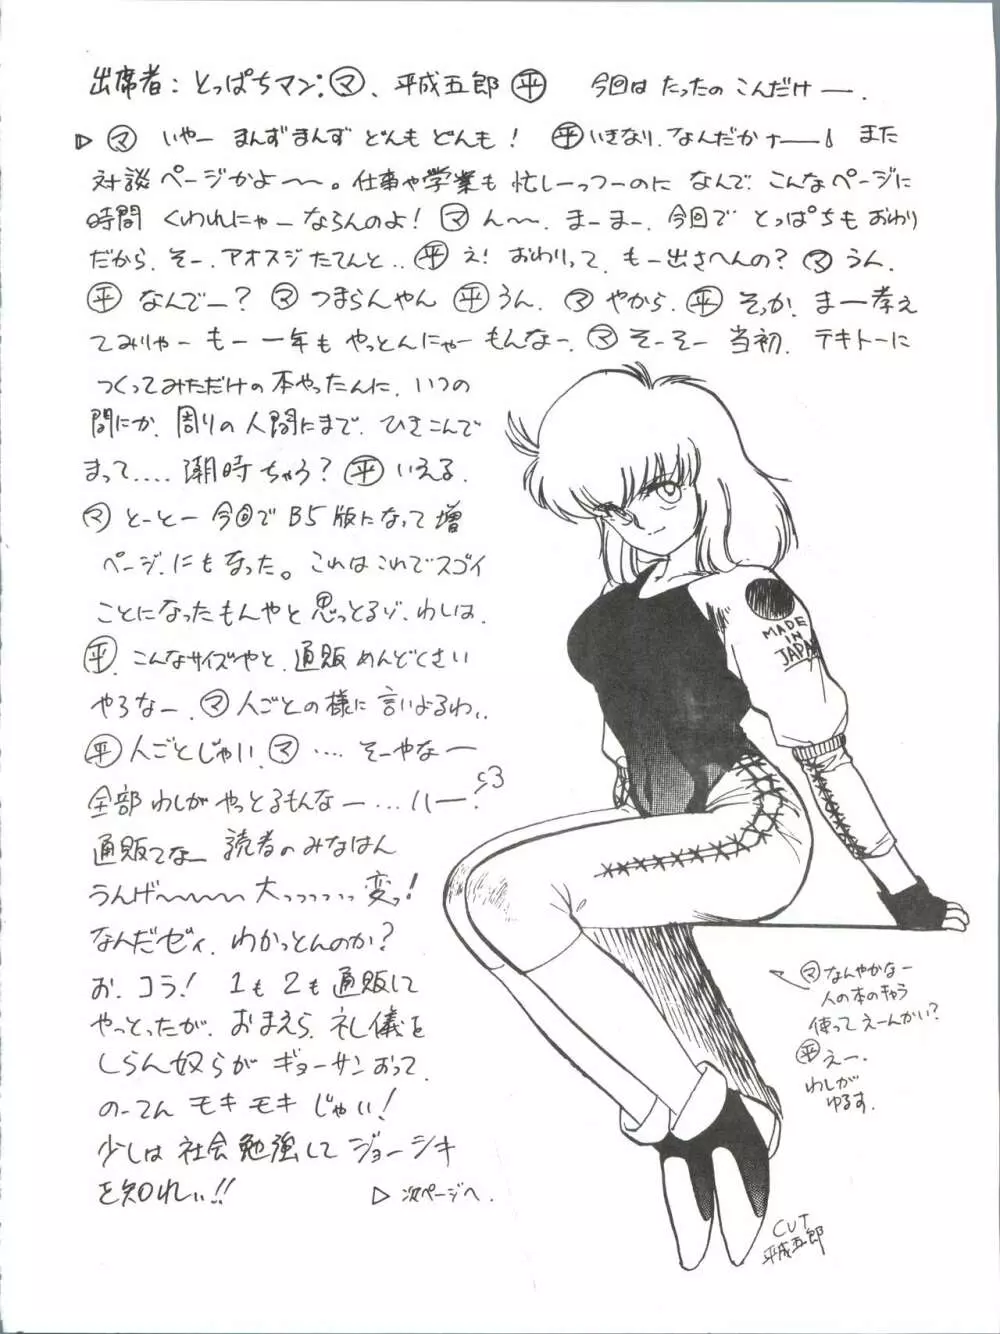 出席者：とっぱちマン：㋮、平成五郎 ㊥平 今回は たったの こんだけー．
▷ ㋮ いやー まんずまんず どんも どんも！ 平 いきなり、なんだかナ──！ また
対談ページかよ〜〜。仕事や学業も忙しーっつーのに なんで、こんなページに
時間 くわれにゃーならんのよ！ ㋮ ん〜〜、まーまー、今回で とっぱちも おわり
だから、そー、アオスジ たてんと．． 平 え！ おわりって、もー出さへんの？ ㋮ うん．
平 なんでー？ ㋮ つまらんやん 平 うん． ㋮ やから． 平 そっか、まー考え
てみりゃー もー 一年も やっとんにゃー もんなー． ㋮ そーそー 当初、テキトーに
つくってみただけの 本やったんに、いつの
間にか、周りの人間にまで、ひきこんで
まって‥‥ 潮時ちゃう？ 平 いえる．
㋮ とーとー 今回で B5版になって増
ページ、にもなった。これはこれでスゴイ
ことになったもんやと、思っとるゾ、わしは．
平 こんなサイズやと、通販 めんどくさい
やろなー． ㋮ 人ごとの様に言いよるわい．
平 人ごとじゃい． ㋮ ‥‥ そーやなー
全部 わしが やっとるもんなー…ハー．
通販てなー 読者のみなはん
うんげ〜〜〜〜 大っっっっっ変っ！
なんだゼィ、わかっとんのか？
お、コラ！ 1も2も通販して
やっとったが、おまえら、礼儀を
しらん奴らが ギョーサンおって、
のーてん モキモキ じゃい！
少しは 社会勉強して ジョーシキ
を知れぃ!!
▷ 次ページへ．
MADE
IN
JAPAN
㋮ なんやかなー
人の本のキャラ
使って えーんかい？
平 えー．
わしが
ゆるす．
CUT
平成五郎